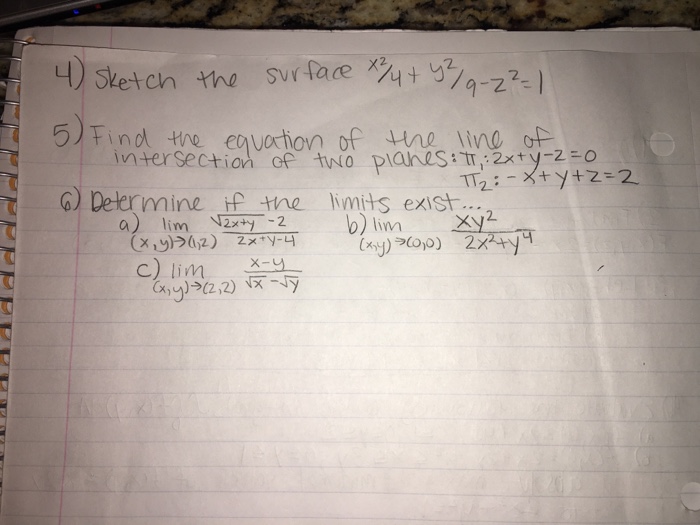 4) Sketch the surface x²/4 + y²/9 - z² = 1
5) Find the equation of the line of
intersection of two planes: π₁: 2x+y-z=0
π₂: -x+y+z=2
6) Determine if the limits exist...
a) lim (x,y)→(1,2) (√(2x+y) - 2)/(2x+y-4) b) lim (x,y)→(0,0) xy²/(2x²+y⁴)
c) lim (x,y)→(2,2) (x-y)/(√x - √y)